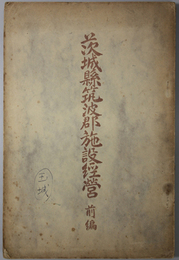 茨城縣筑波郡施設經營
前編